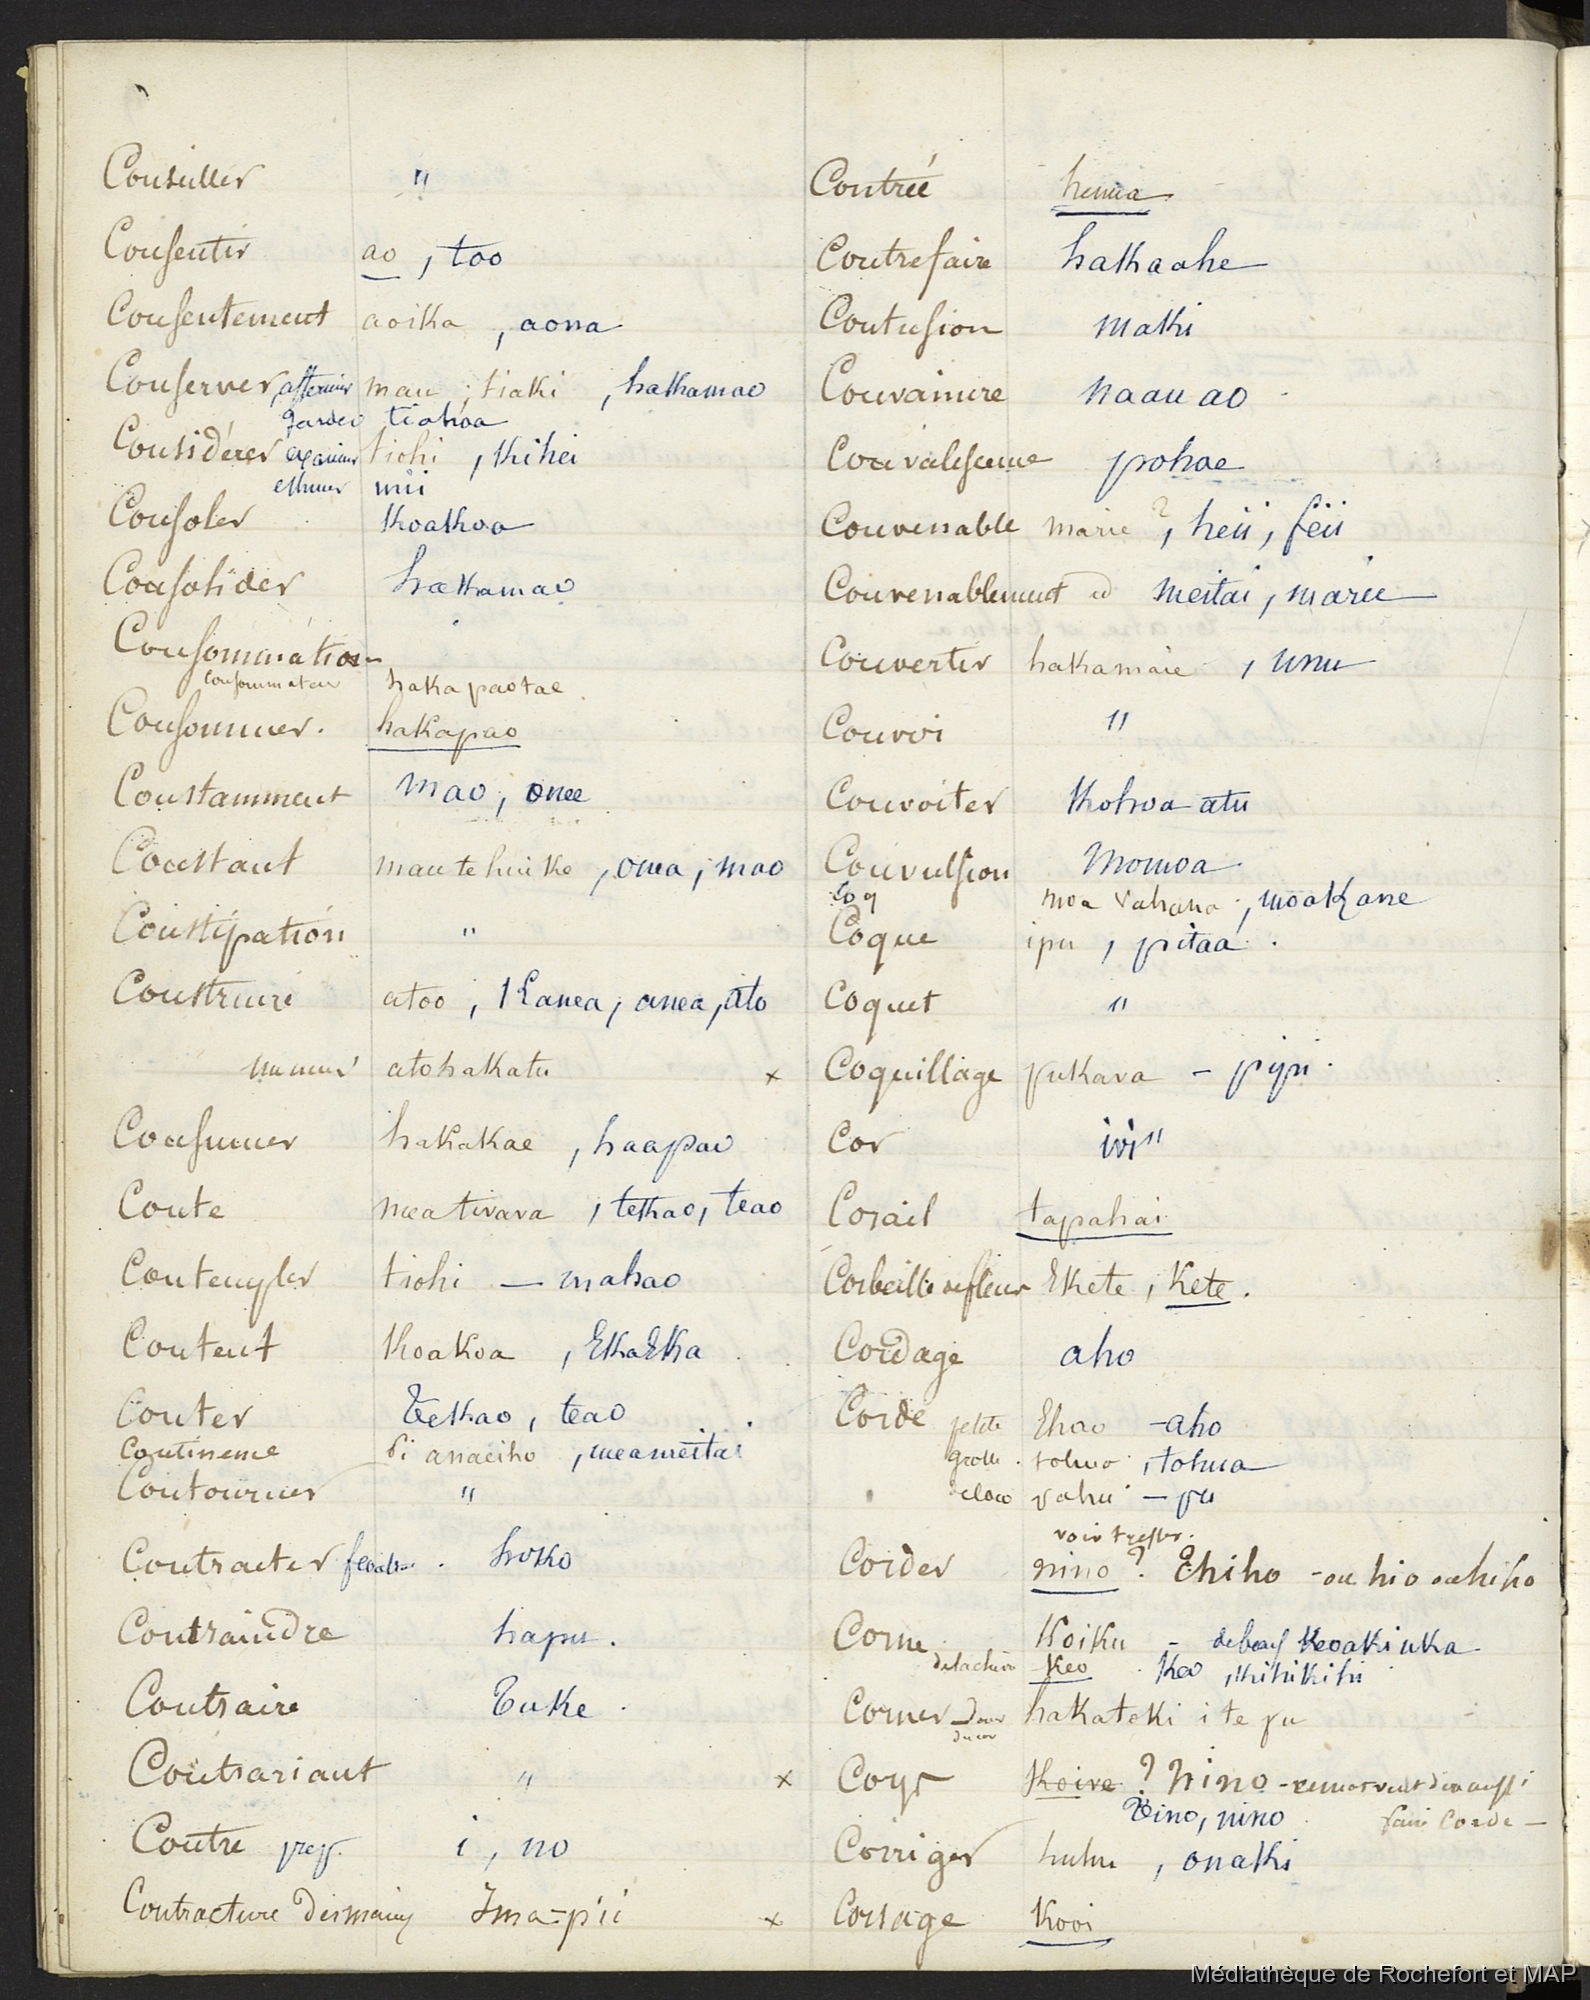 Conseiller "
Consentir ao, too
Consentement aoika, aona
Conserver, affermir mau, tiaki, hakamao
garder tiohoa
Considérer examiner tiohi, kihei
estimer mii
Consoler koakoa
Consolider hakamao
Consommation
consommateur haka paotae
Consommer. hakapao
Constamment mao, onee
Constant mau te huike, onea, mao
Constipation "
Construire atoo, kanea, anea, ato
un mur atohakatu
Consumer hakakae, haapao
Conte mea tivava, tekao, teao
Contempler tiohi — mahao
Content koakoa, EkaEka
Conter Tekao, teao
Continence Pi anaeiho, meameitai
Contourner "
Contracter hoko
Contraindre hapu.
Contraire Tuke.
Contrariant "
Contre prep. i, no
Contracture des mains Ima-pii
Contrée henua
Contrefaire hakaahe
Contusion maki
Convaincre naau ao
Convalescence pohoe
Convenable marie ?, heii, feii
Convenablement id meitai, mariee
Convertir hakamaie, unu
Convoi "
Convoiter kohoa atu
Convulsion Momoa
Coq moa vahana, moakane
Coque ipu, pitaa.
Coquet "
x Coquillage pukava - pipi.
Cor ivi "
Corail tapahai
Corbeille de fleur Ekete, Kete.
Cordage aho
Corde petite Ehao - aho
grosse. tohua, tohua
de coco vahu - pu
voir tresser.
Corder nino ? Ehiho - ou hio ou hiho
Corne Koiku - de boeuf keoakiuka
de la chèvre Keo Keo, kihikihi
Corner du cor hakateki i te pu
x Corps Koivo ? Nino - remarquer
Tino, nino faire Corde —
Corriger huhu, onaki
x Corsage Kooi
Médiathèque de Rochefort et MAP